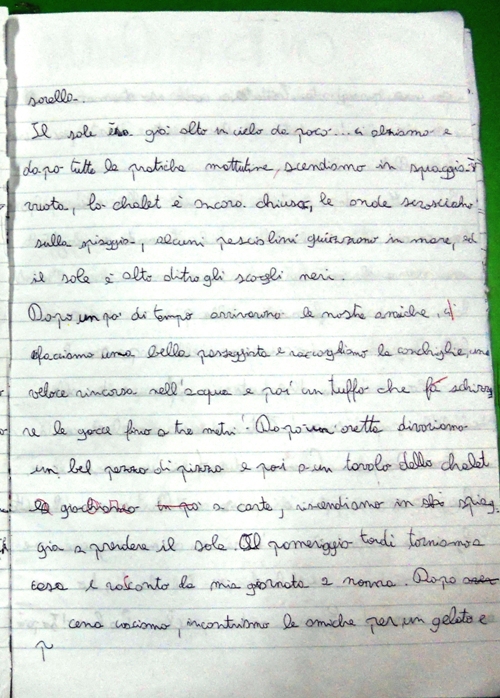 sorella.
Il sole era già alto in cielo da poco... ci alziamo e
dopo tutte le pratiche mattutine, scendiamo in spiaggia. È
vuota, lo chalet è ancora chiuso, le onde scrosciano
sulla spiaggia, alcuni pesciolini guizzano in mare, ed
il sole è alto dietro gli scogli neri.
Dopo un po' di tempo arrivarono le nostre amiche, ci
facciamo una bella passeggiata e raccogliamo le conchiglie, una
veloce rincorsa nell'acqua e poi un tuffo che fa schizza
re le gocce fino a tre metri! Dopo un'oretta divoriamo
un bel pezzo di pizza e poi a un tavolo dello chalet
giochiamo un po' a carte, riscendiamo in spiag
gia a prendere il sole. Il pomeriggio tardi torniamo a
casa e racconto la mia giornata a nonna. Dopo
cena usciamo, incontriamo le amiche per un gelato e
p